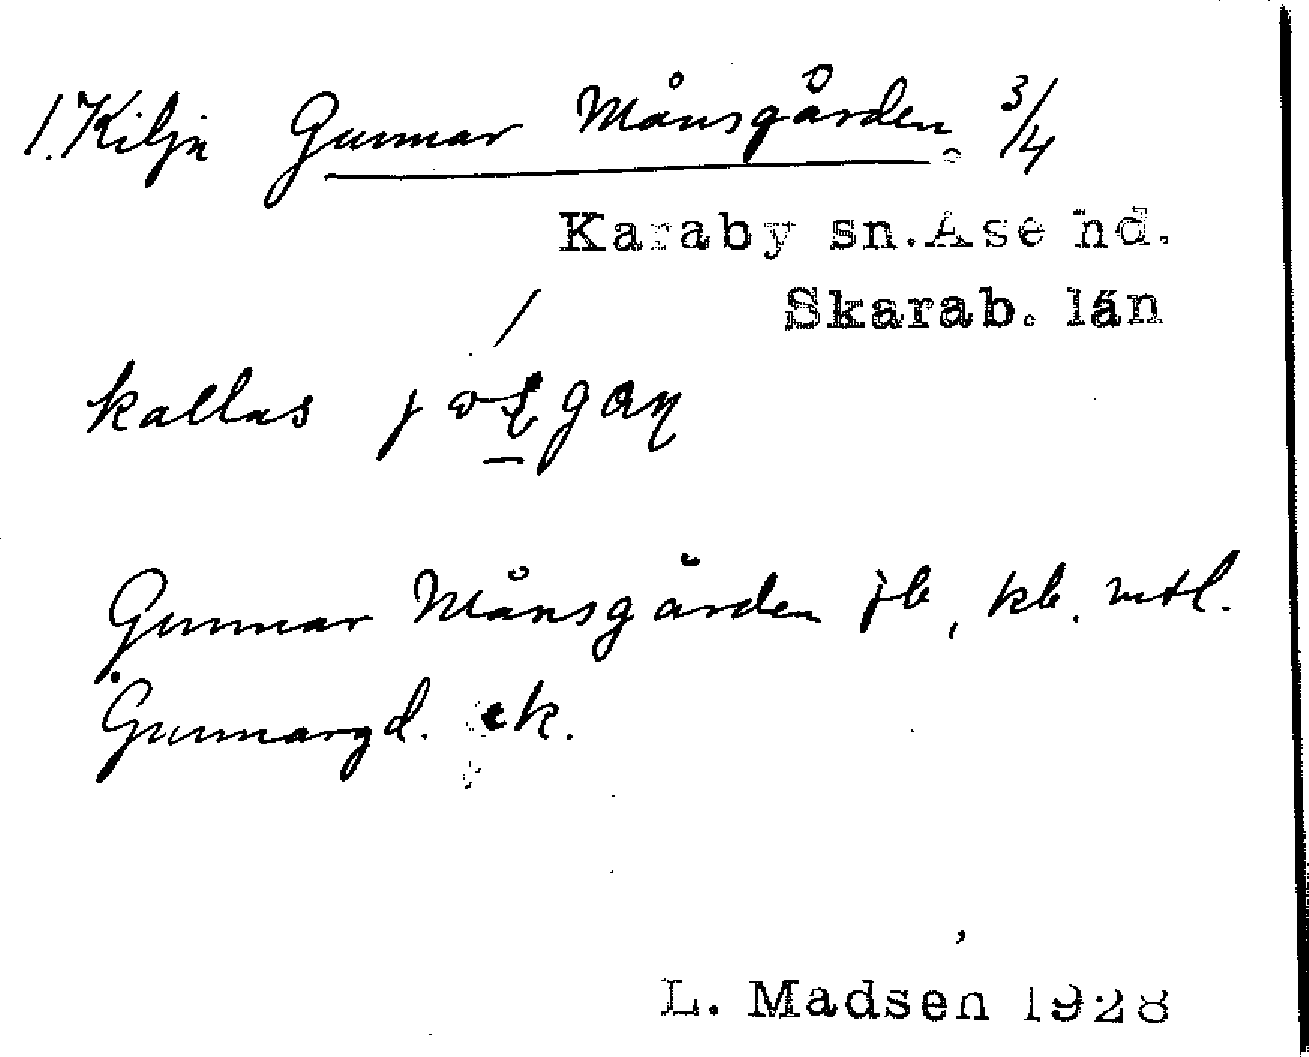 1. Kilja Gunnar Månsgården 3/4
Karaby sn. Åse hd.
Skarab. län
kallas
Gunnar Månsgården jb, kb. mtl.
Gunnargd. ek.
L. Madsen 1928